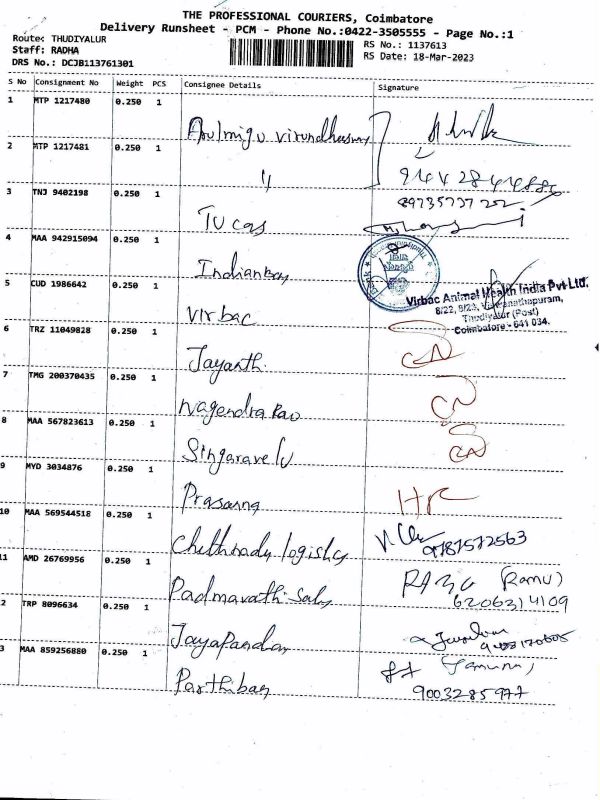 THE PROFESSIONAL COURIERS, Coimbatore
Delivery Runsheet - PCM - Phone No.:0422-3505555 - Page No.:1
Route: THUDIYALUR
Staff: RADHA
DRS No.: DCJB113761301
RS No.: 1137613
RS Date: 18-Mar-2023
S No Consignment No Weight PCS Consignee Details Signature
1 MTP 1217480 0.250 1 Arulmigu
2 MTP 1217481 0.250 1 "
3 TNJ 9402198 0.250 1 Tucas
4 MAA 942915094 0.250 1 Indianbay
5 CUD 1986642 0.250 1 Virbac
Virbac Animal Health India Pvt Ltd.
Thudiyalur (Post)
Coimbatore - 641 034.
6 TRZ 11049828 0.250 1 Jayanth.
7 TMG 200370435 0.250 1 Nagendra Rao
8 MAA 567823613 0.250 1 Singaravelu
9 MYD 3034876 0.250 1 Prasanna
10 MAA 569544518 0.250 1 Chethinadu logistics 9787572563
11 AMD 26769956 0.250 1 Padmavathi (Ramu)
6206314109
2 TRP 8096634 0.250 1 Jayapandan
3 MAA 859256880 0.250 1 Parthiban
9003285977